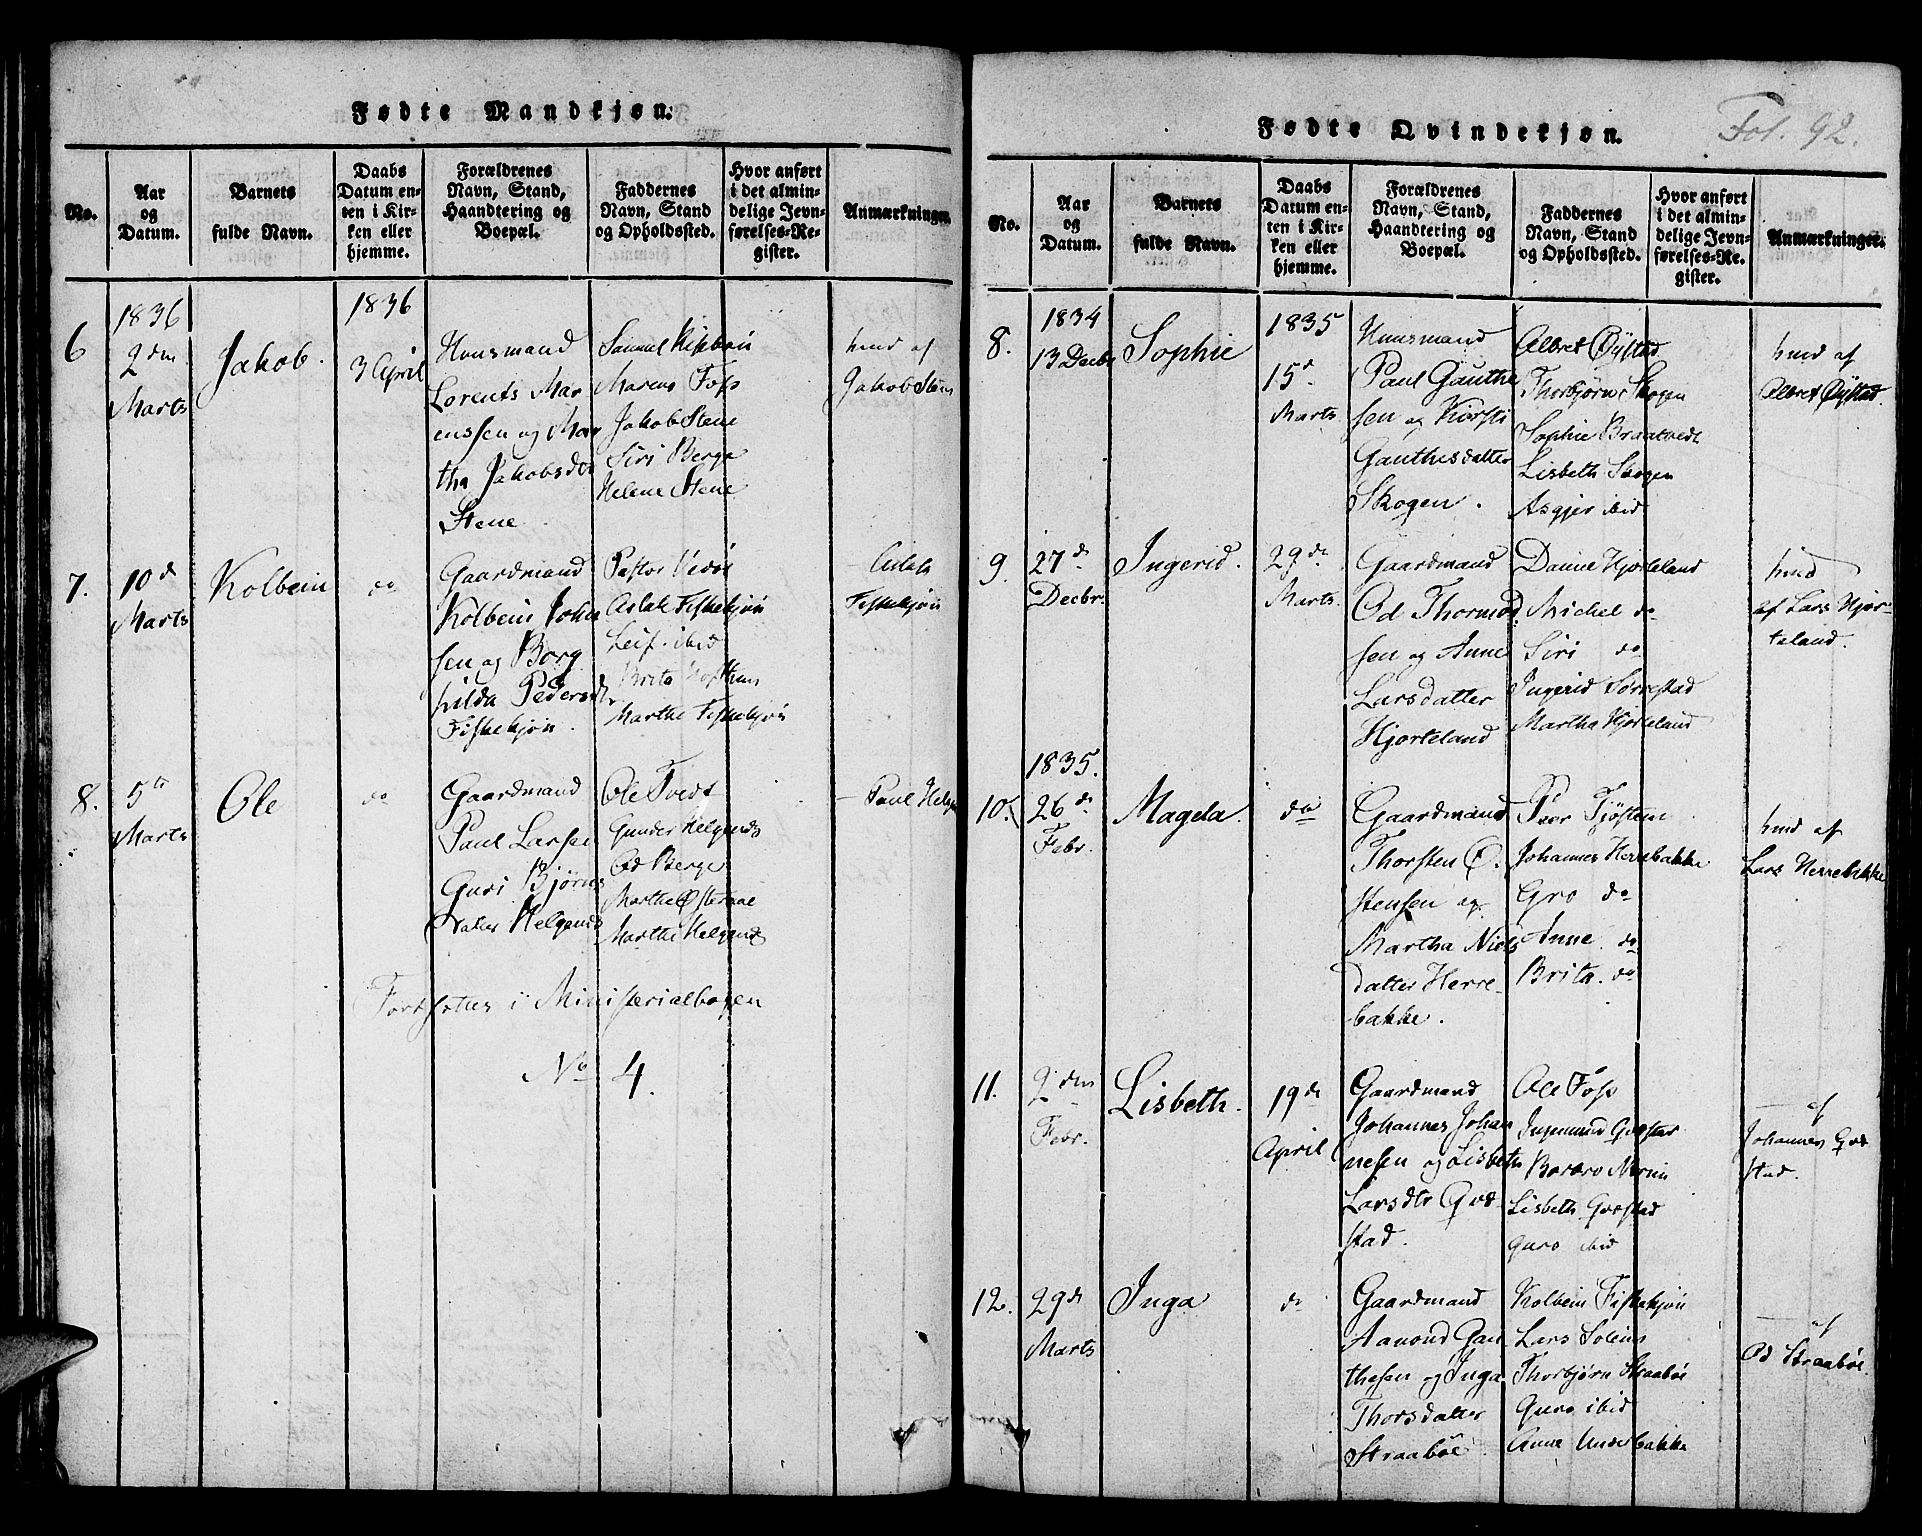 Fødte Mandkjøn.
No.
Aar
og
Datum.
Barnets
fulde Navn.
Daabs
Datum en-
ten i Kir-
ken eller
hjemme.
Forældrenes
Navn, Stand,
Haandtering og
Boepæl.
Faddernes
Navn, Stand
og Opholdssted.
Hvor anført
i det almin-
delige Jevn-
førelses-Re-
gister.
Anmærkninger.
6
1836
2den
Marts
Jakob.
1836
3 April
Huusmand
Lorents Mar
enssen og Mar
tha Jakobsda
Stene
Samuel
Marens Foss
Jakob Stene
Siri Berge
Helene Stene
hmd af
Jakob Stene
7.
10 d
Marts
Kolbein
do
Gaardmand
Kolbein John
sen og Borg
hilda Pedersd
Fiskekjøn.
Pastor
Aslak Fiskekjøn
Leif. ibid
Brita
Marthe Fiskekjøn
— Aslak
Fiskekjøn
8.
5te
Marts
Ole
do
Gaardmand
Paul Larsen
Guri Bjørns
datter Helgenes
Ole Tvedt
Gunder Helgenes
Od Berge
Marthe
Marthe Helgenes
— Paul Helge
Fortsættes i Ministerialbogen
No 4.
Fol. 92.
Fødte Qvindekjøn.
No.
Aar
og
Datum.
Barnets
fulde Navn.
Daabs
Datum en-
ten i Kir-
ken eller
hjemme.
Forældrenes
Navn, Stand,
Haandtering og
Boepæl.
Faddernes
Navn, Stand
og Opholdssted.
Hvor anført
i det almin-
delige Jevn-
førelses-Re-
gister.
Anmærkninger.
8.
1834
13 Decbr
Sophie
1835
15d
Marts
Huusmand
Paul Gauthe
sen og Kirsti
Gauthesdatter
Skogen.
Albret Øÿstad
Thorbjørn Skogen
Sophie Braatvedt
Lisbeth Skogen
Asgjer ibid
hmd af
Albret Øÿstad.
9.
27 de
Decbr.
Ingerid.
29 de
Marts.
Gaardmand
Od Thormod
sen og Anne
Larsdatter
Hjorteland
Daniel Hjorteland
Michel do
Siri do
Ingerid Sørrestad
Martha Hjorteland
hmd
af Lars Hjor-
teland.
10.
1835.
26 de
Febr.
Magela.
do
Gaardmand
Thorsten O.
stensen og
Martha Niels
datter Herre-
bakke.
Peer Tjøstem
Johannes Herrebakke
Gro do
Anne. do
Brita. do
hmd af
Lars Herrebakke
11.
2 den
Febr.
Lisbeth.
19 de
April
Gaardmand
Johannes Johan
nesen og Lisbeth
Larsdtr Qvs
stad.
Ole Foss
Ingemund
Barbro
Lisbeth
Guro ibid
— af
Johannes
stad.
12.
29 de
Marts
Inga
do
Gaardmand
Aanond Gau
thesen og Inga
Thorsdatter
Straabøe
Kolbein Fiskekjøn
Lars
Thorbjørn Straabøe
Guro ibid
Anne Underbakke
— af
Od Straabøe.